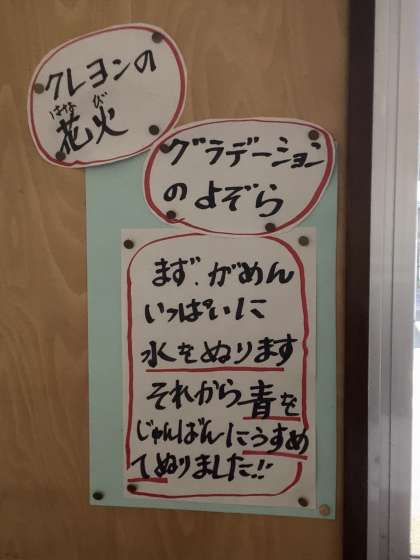 クレヨンの
はなび
花火
グラデーション
のよぞら
まず、がめん
いっぱいに
水をぬります
それから青を
じゅんばんにうすめ
てぬりました!!